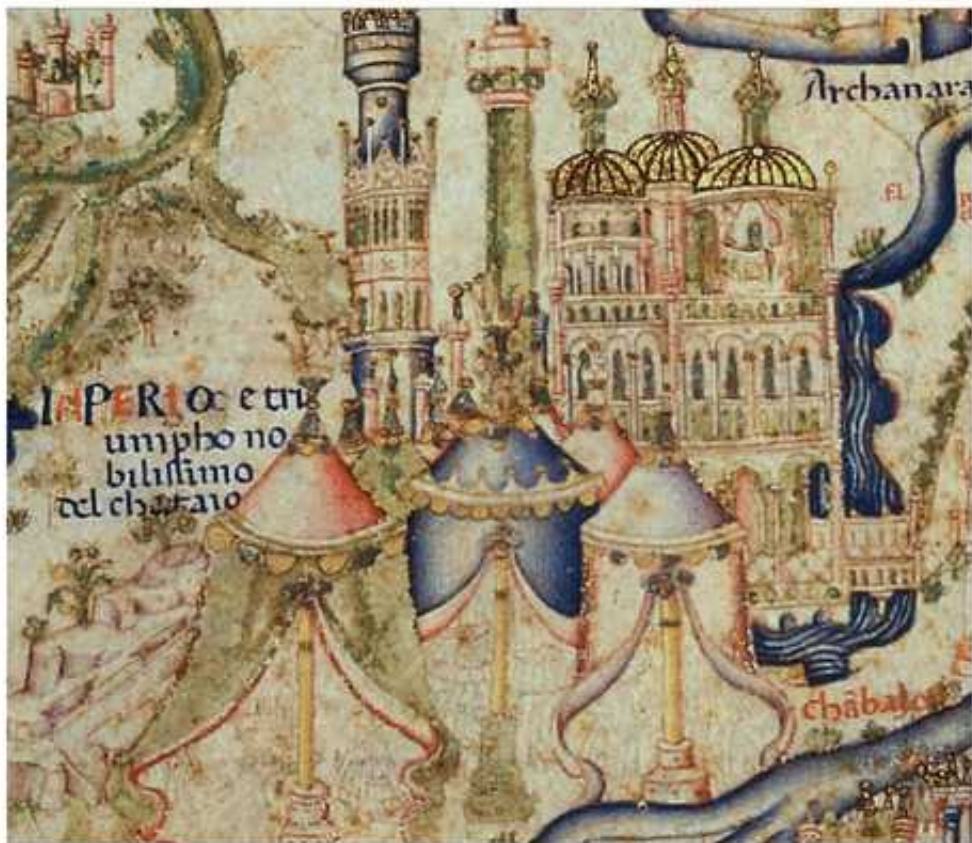 Archanara
INPERIO e tri
umpho no
bilissimo
del chataio
chābalo